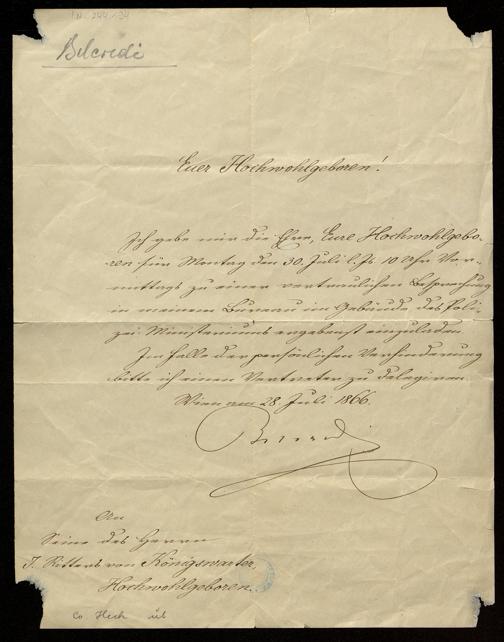 Belcredi
Euer Hochwohlgeboren!
Ich gebe mir die Ehre, Eure Hochwohlgebo-
ren für Montag den 30. Juli l. Js 10 Uhr Vor-
mittags zu einer vertraulichen Besprechung
in meinem Bureau im Gebäude des Poli-
zei Ministeriums ergebenst einzuladen.
Im Falle der persönlichen Verhinderung
bitte ich einen Vertreter zu delegiren.
Wien am 28 Juli 1866.
Belcredi
An
Seine des Herrn
J. Ritters von Königswarter
Hochwohlgeboren.